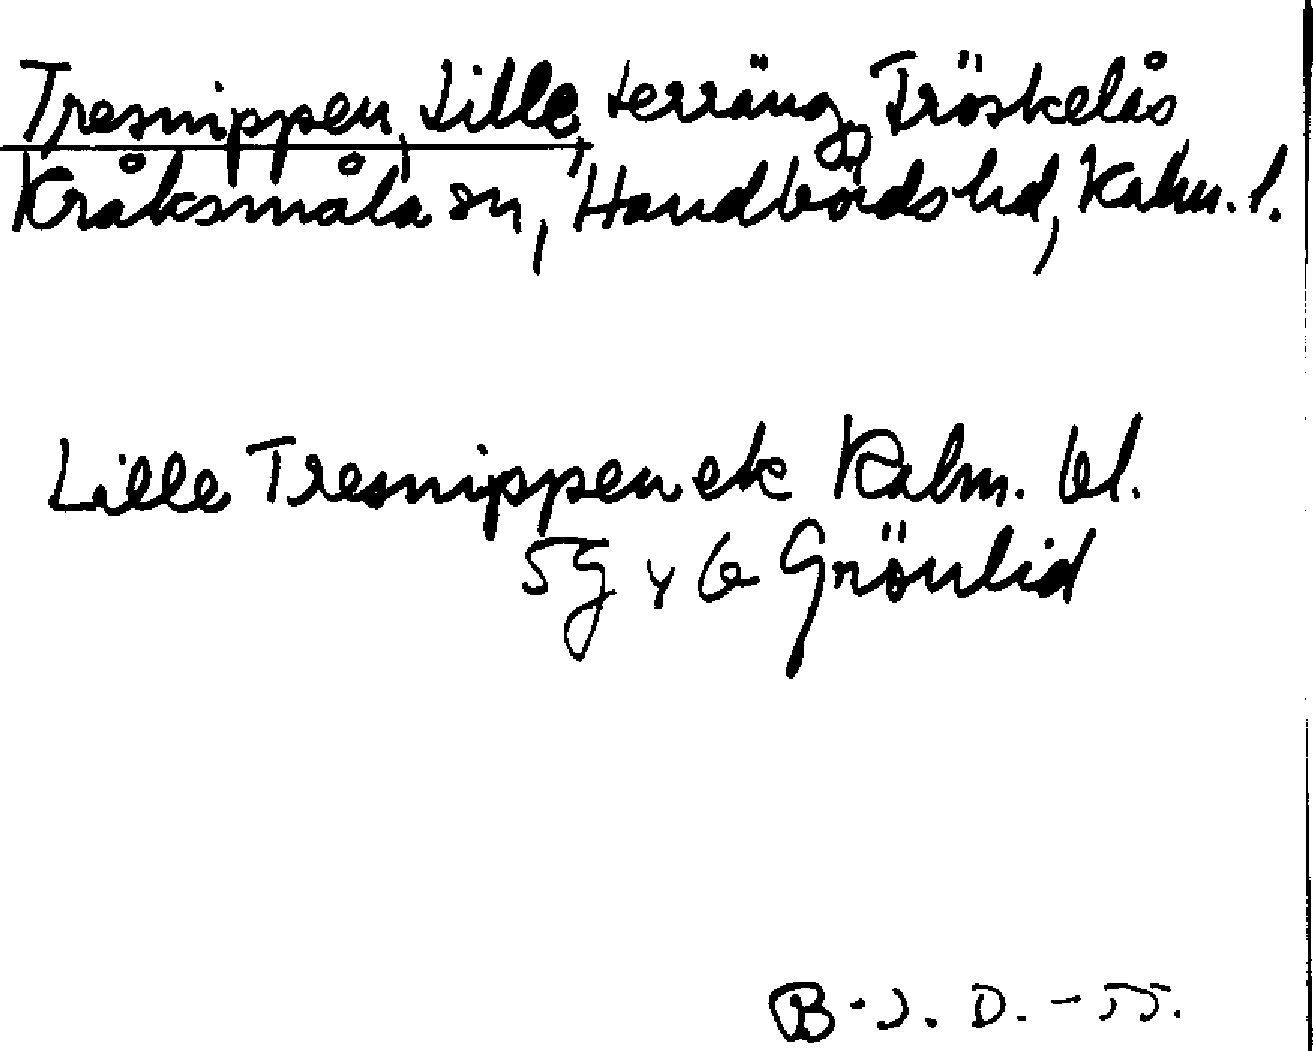 Tresnippen, Lille, terräng, Fröskelås
Kråksmåla sn, Handbörds hd, Kalm. l.
Lille Tresnippen ek Kalm. bl.
5G y 6 Grönlid
B-J. D. -55.